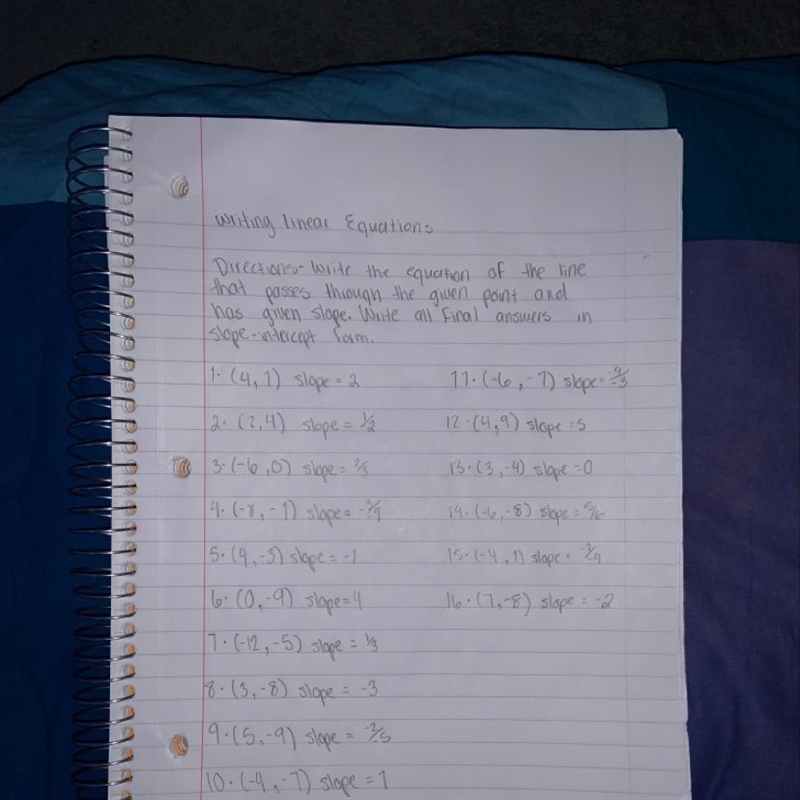 Writing linear Equations
Directions- Write the equation of the line
that passes through the given point and
has given slope. Write all final answers in
slope-intercept form.
1. (4, 1) slope = 2
2. (2, 4) slope = 1/2
3. (-6, 0) slope = 2/3
4. slope =
5. slope = -1
6. (0, -9) slope = 4
7. (-12, -5) slope = 1/3
8. (3, -8) slope = -3
9. (5, -9) slope =
10. slope = 1
11. slope =
12. (4, 9) slope = 5
13. (3, -4) slope = 0
14. (-6, -8) slope = 5/6
15. (-4, 1) slope =
16. (7, -8) slope = -2